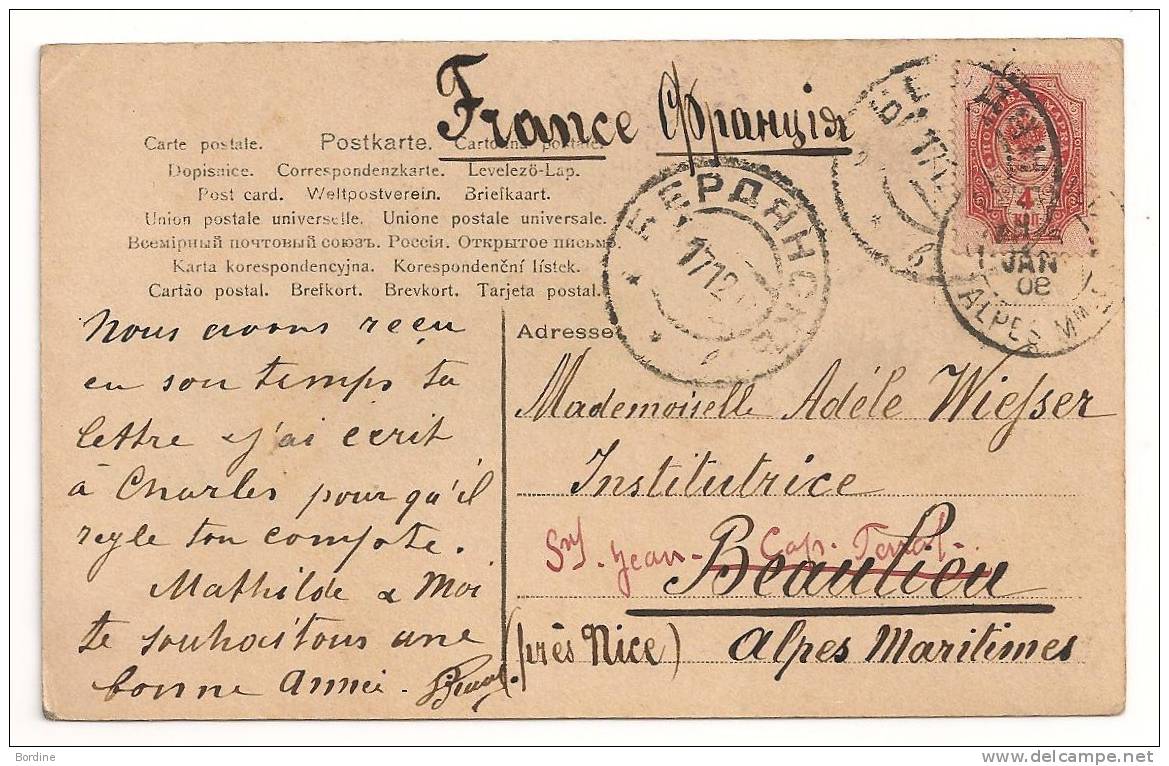 France Франція
Carte postale. Postkarte. Cartolina postale.
Dopisnice. Correspondenzkarte. Levelező-Lap.
Post card. Weltpostverein. Briefkaart.
Union postale universelle. Unione postale universale.
Всемірный почтовый союзъ. Россія. Открытое письмо.
Karta korespondencyjna. Korespondenční lístek.
Cartão postal. Brefkort. Brevkort. Tarjeta postal.
БЕРДЯНСКЪ
1712
ПОЧТОВ МАРКА
4
КОП.
JAN
08
ALPES MMES
Nous avons reçu
en son temps ta
lettre & j'ai écrit
à Charles pour qu'il
regle ton compte.
Mathilde & Moi
te souhaitons une
bonne année.
Adresse
Mademoiselle Adéle Wiesser
Institutrice
St. Jean - Cap.
Beaulieu
(près Nice) Alpes Maritimes
Bordine
www.delcampe.net